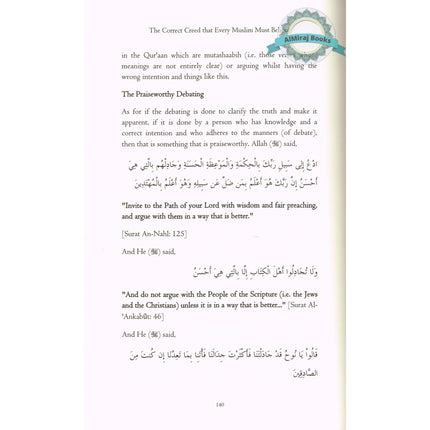 The Correct Creed that Every Muslim Must
AlMiraj Books
in the Qur'aan which are mutashaabih (i.e. those
meanings are not entirely clear) or arguing whilst having the
wrong intention and things like this.
The Praiseworthy Debating
As for if the debating is done to clarify the truth and make it
apparent, if it is done by a person who has knowledge and a
correct intention and who adheres to the manners (of debate),
then that is something that is praiseworthy. Allah (ﷻ) said,
ادْعُ إِلَى سَبِيلِ رَبِّكَ بِالْحِكْمَةِ وَالْمَوْعِظَةِ الْحَسَنَةِ وَجَادِلْهُم بِالَّتِي هِيَ
أَحْسَنُ إِنَّ رَبَّكَ هُوَ أَعْلَمُ بِمَن ضَلَّ عَن سَبِيلِهِ وَهُوَ أَعْلَمُ بِالْمُهْتَدِينَ
"Invite to the Path of your Lord with wisdom and fair preaching,
and argue with them in a way that is better."
[Surat An-Nahl: 125]
And He (ﷻ) said,
وَلَا تُجَادِلُوا أَهْلَ الْكِتَابِ إِلَّا بِالَّتِي هِيَ أَحْسَنُ
"And do not argue with the People of the Scripture (i.e. the Jews
and the Christians) unless it is in a way that is better..." [Surat Al-
'Ankabût: 46]
And He (ﷻ) said,
قَالُوا يَا نُوحُ قَدْ جَادَلْتَنَا فَأَكْثَرْتَ جِدَالَنَا فَأْتِنَا بِمَا تَعِدُنَا إِن كُنتَ مِنَ
الصَّادِقِينَ
140